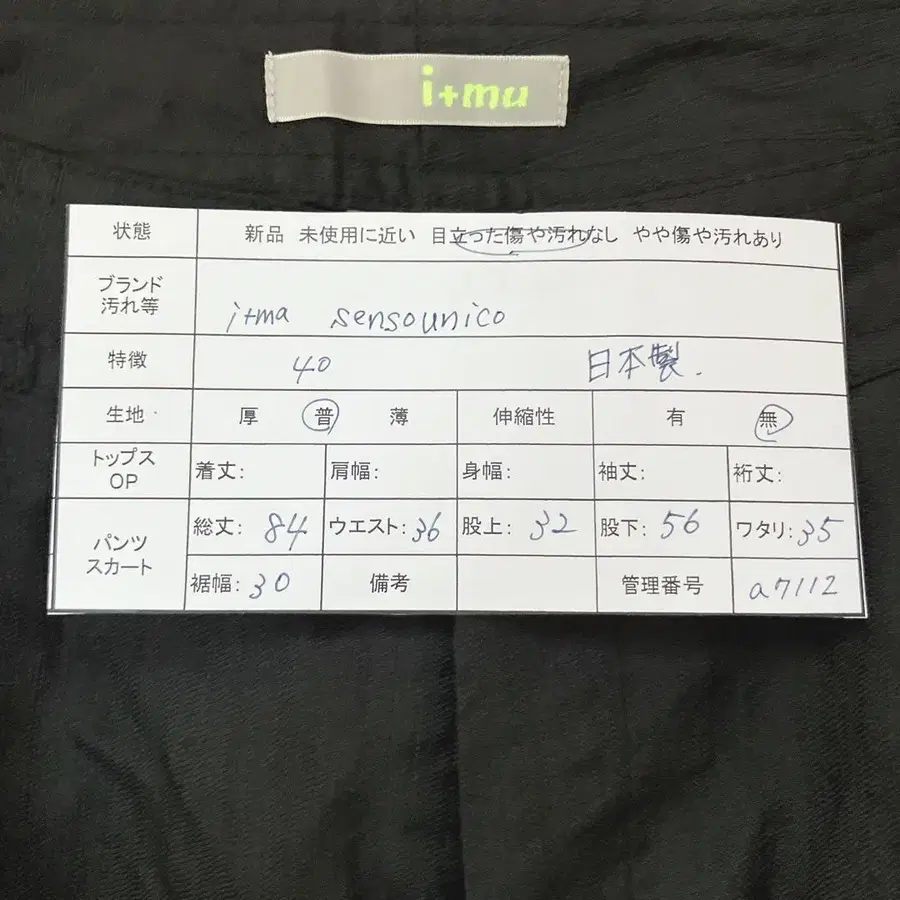 i+mu
状態 新品 未使用に近い 目立った傷や汚れなし やや傷や汚れあり
ブランド
汚れ等
i+ma sensounico
特徴 40 日本製.
生地 厚 普 薄 伸縮性 有 無
トップス
OP
着丈: 肩幅: 身幅: 袖丈: 裄丈:
パンツ
スカート
総丈: 84 ウエスト: 36 股上: 32 股下: 56 ワタリ: 35
裾幅: 30 備考 管理番号 a7112